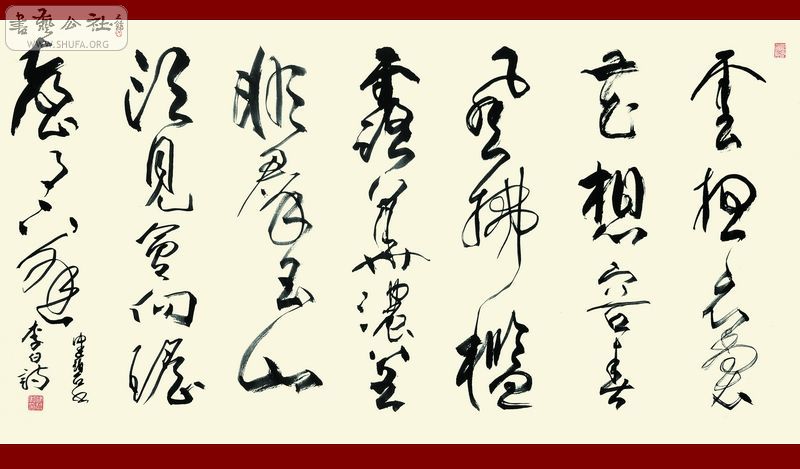 書藝公社
WWW.SHUFA.ORG
雲想衣裳
花想容春
風拂檻
露華濃若
非群玉山
頭見會向瑤
臺月下逢
李白詩